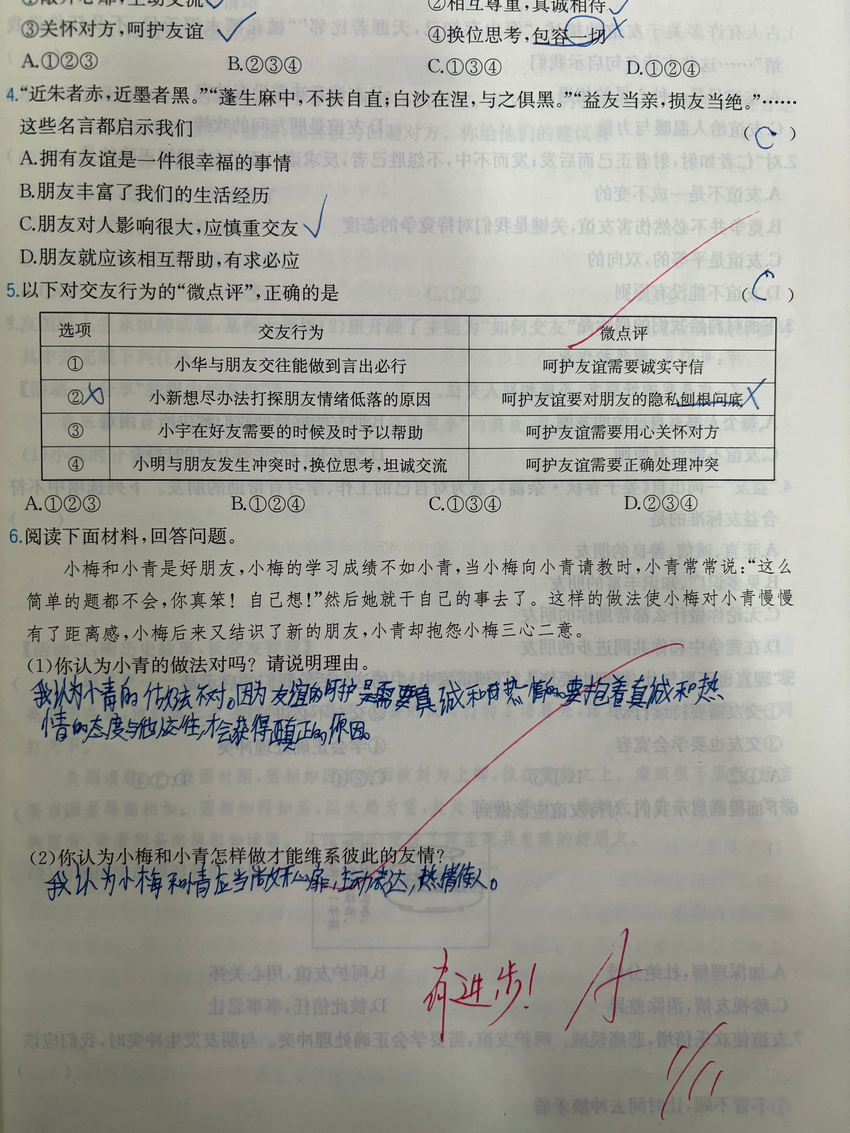 ①敞开心扉,主动交流
②相互尊重,真诚相待
③关怀对方,呵护友谊
④换位思考,包容一切
A.①②③ B.②③④ C.①③④ D.①②④
4.“近朱者赤,近墨者黑。”“蓬生麻中,不扶自直;白沙在涅,与之俱黑。”“益友当亲,损友当绝。”……
这些名言都启示我们 ( C )
A.拥有友谊是一件很幸福的事情
B.朋友丰富了我们的生活经历
C.朋友对人影响很大,应慎重交友
D.朋友就应该相互帮助,有求必应
5.以下对交友行为的“微点评”,正确的是 ( C )
选项 交友行为 微点评
① 小华与朋友交往能做到言出必行 呵护友谊需要诚实守信
② 小新想尽办法打探朋友情绪低落的原因 呵护友谊要对朋友的隐私刨根问底
③ 小宇在好友需要的时候及时予以帮助 呵护友谊需要用心关怀对方
④ 小明与朋友发生冲突时,换位思考,坦诚交流 呵护友谊需要正确处理冲突
A.①②③ B.①②④ C.①③④ D.②③④
6.阅读下面材料,回答问题。
小梅和小青是好朋友,小梅的学习成绩不如小青,当小梅向小青请教时,小青常常说:“这么
简单的题都不会,你真笨!自己想!”然后她就干自己的事去了。这样的做法使小梅对小青慢慢
有了距离感,小梅后来又结识了新的朋友,小青却抱怨小梅三心二意。
(1)你认为小青的做法对吗?请说明理由。
我认为小青的做法不对。因为友谊的呵护是需要真诚和热情的。要抱着真诚和热
情的态度与他交往,才会获得真正的原因。
(2)你认为小梅和小青怎样做才能维系彼此的友情?
我认为小梅和小青应当敞开心扉,主动表达,热情待人。
有进步!